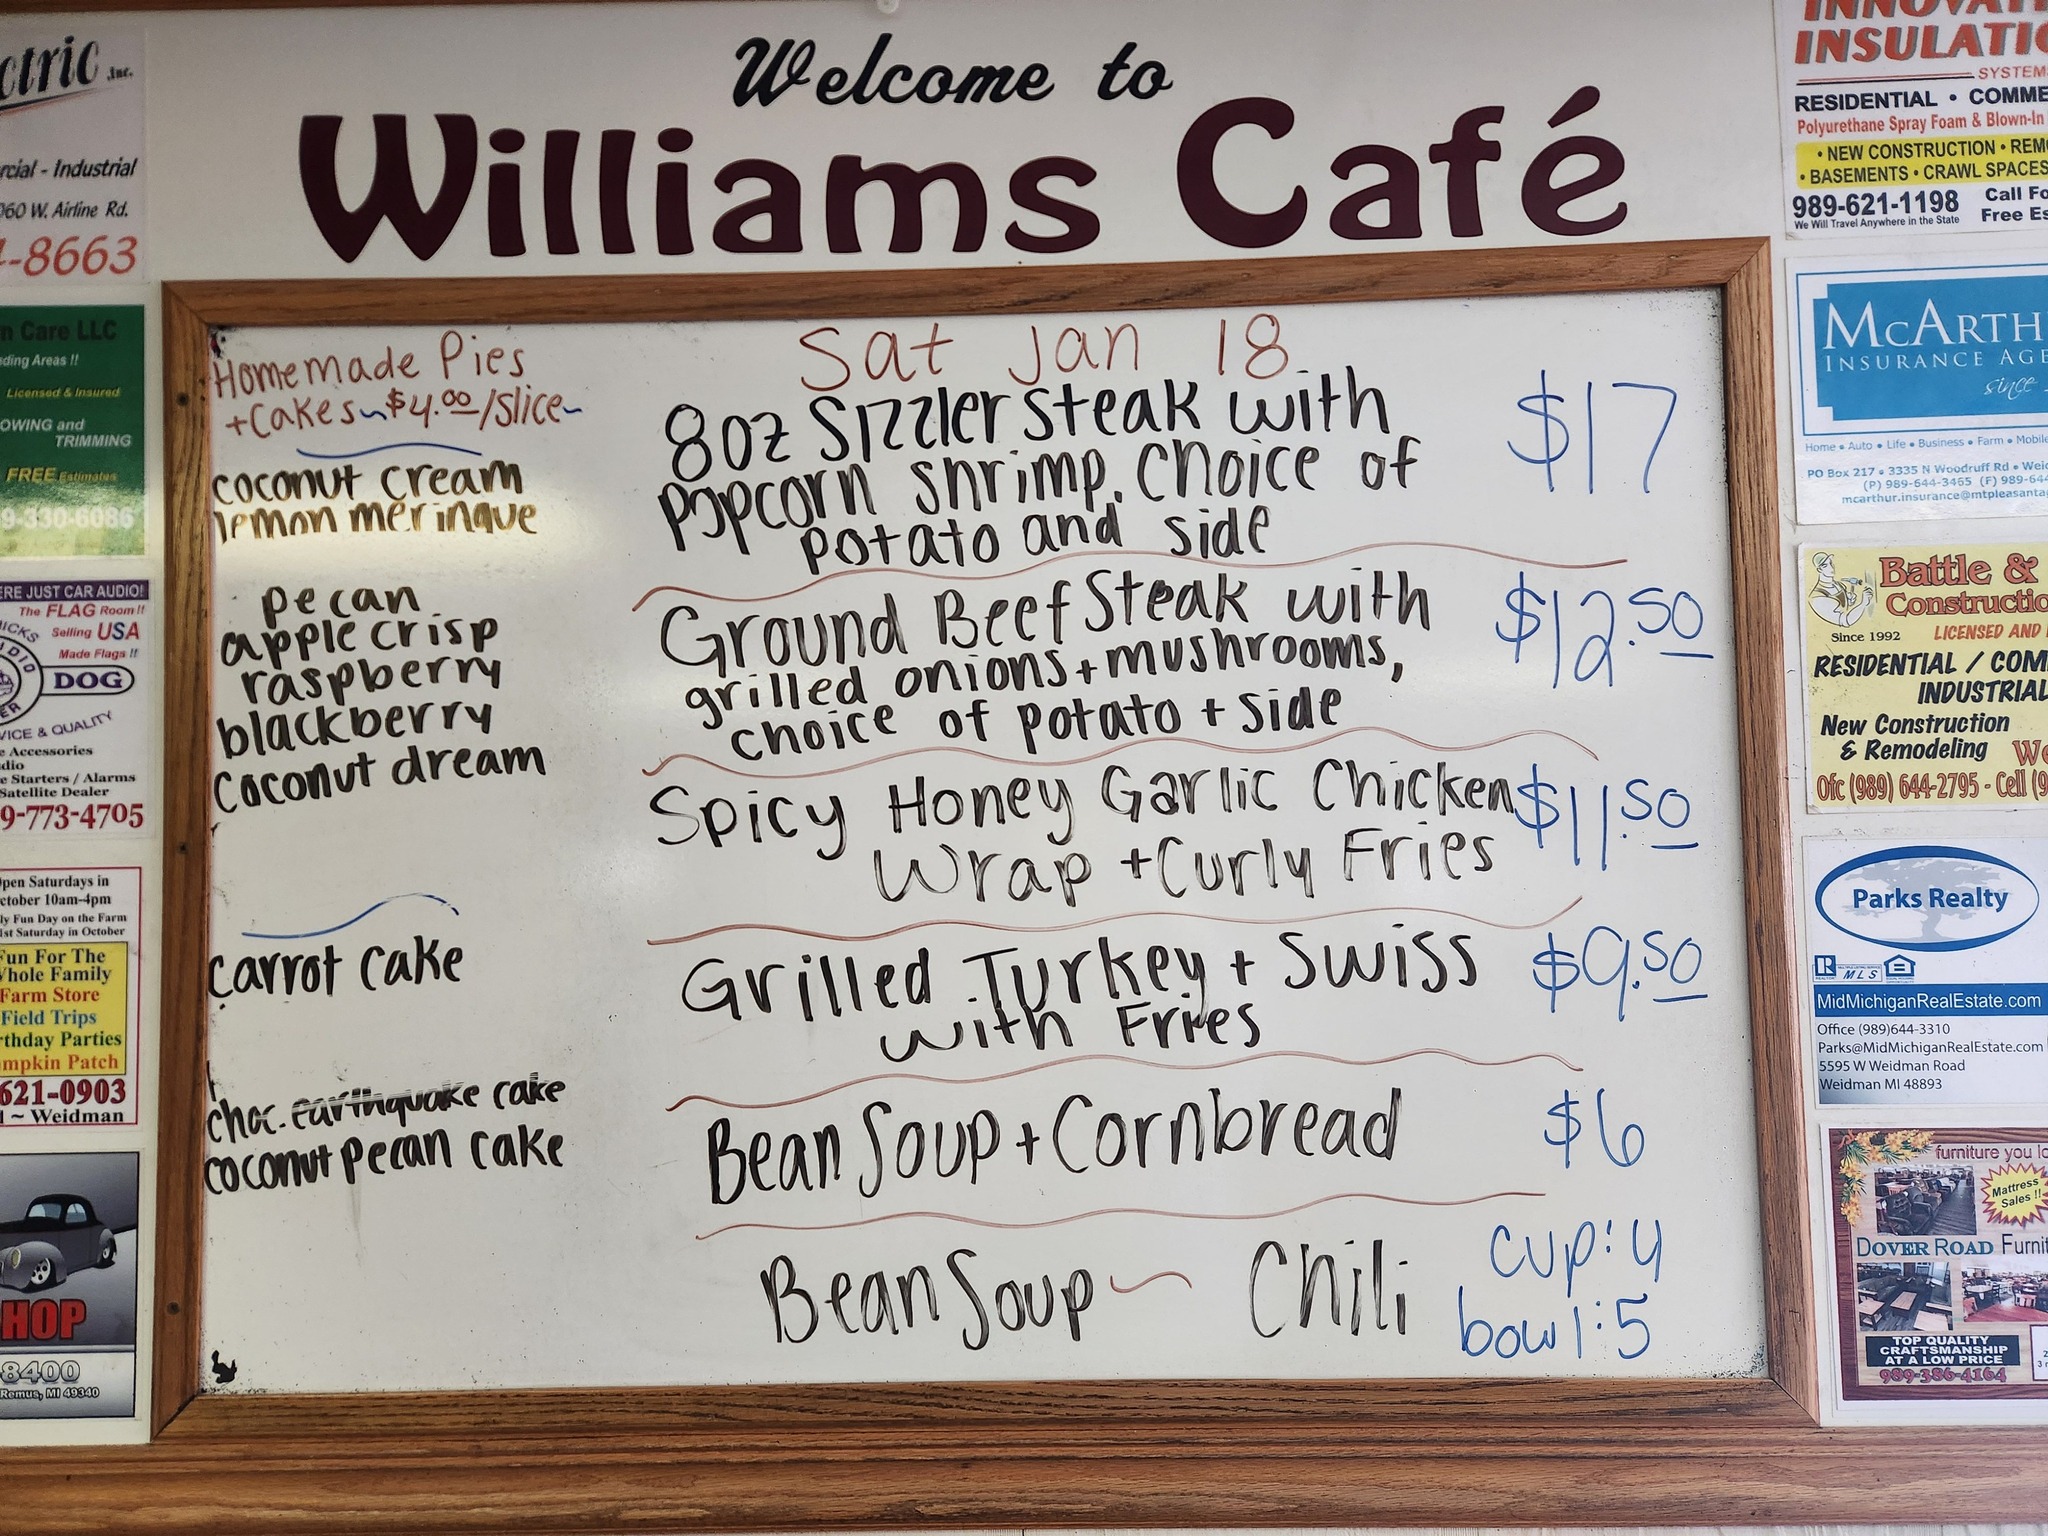 Welcome to
Williams Café
Homemade Pies
+Cakes~$4.00/slice~
coconut cream
lemon meringue
pecan
apple crisp
raspberry
blackberry
coconut dream
carrot cake
choc. earthquake cake
coconut pecan cake
Sat Jan 18
8oz Sizzler Steak with
popcorn shrimp. Choice of
potato and side
$17
Ground Beef Steak with
grilled onions + mushrooms,
choice of potato + side
$12.50
Spicy Honey Garlic Chicken
Wrap + Curly Fries
$11.50
Grilled Turkey + Swiss
with Fries
$9.50
Bean Soup + Cornbread
$6
Bean Soup ~ Chili
cup: 4
bowl: 5
ctric Inc.
rcial - Industrial
060 W. Airline Rd.
-8663
n Care LLC
ding Areas !!
Licensed & Insured
OWING and
TRIMMING
FREE Estimates
9-330-6086
ERE JUST CAR AUDIO!
The FLAG Room!!
Selling USA
Made Flags !!
DOG
VICE & QUALITY
e Accessories
dio
e Starters / Alarms
Satellite Dealer
9-773-4705
Open Saturdays in
ctober 10am-4pm
ly Fun Day on the Farm
1st Saturday in October
Fun For The
Whole Family
Farm Store
Field Trips
rthday Parties
mpkin Patch
621-0903
~ Weidman
HOP
8400
Remus, MI 49340
INNOVATI
INSULATIO
SYSTEMS
RESIDENTIAL • COMME
Polyurethane Spray Foam & Blown-In
• NEW CONSTRUCTION • REMO
• BASEMENTS • CRAWL SPACES
989-621-1198
Call Fo
Free Es
We Will Travel Anywhere in the State
MCARTH
INSURANCE AGE
since
Home • Auto • Life • Business • Farm • Mobile
PO Box 217 • 3335 N Woodruff Rd • Weid
(P) 989-644-3465 (F) 989-644
mcarthur.insurance@mtpleasanta
Battle &
Constructio
Since 1992
LICENSED AND
RESIDENTIAL / COM
INDUSTRIAL
New Construction
& Remodeling
We
Ofc (989) 644-2795 - Cell (9
Parks Realty
MLS
MidMichiganRealEstate.com
Office (989)644-3310
Parks@MidMichiganRealEstate.com
5595 W Weidman Road
Weidman MI 48893
furniture you lo
Mattress
Sales !!
DOVER ROAD Furnit
TOP QUALITY
CRAFTSMANSHIP
AT A LOW PRICE
989-386-4164